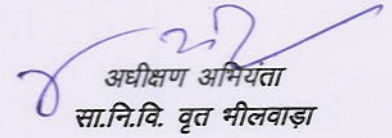 अधीक्षण अभियंता
सा.नि.वि. वृत भीलवाड़ा